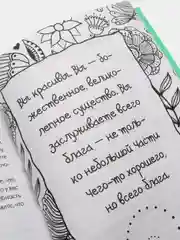 Вы красивы. Вы — бо-
жественное, велико-
лепное существо. Вы
заслуживаете всего
блага — не толь-
ко небольшой части
чего-то хорошего,
но всего блага